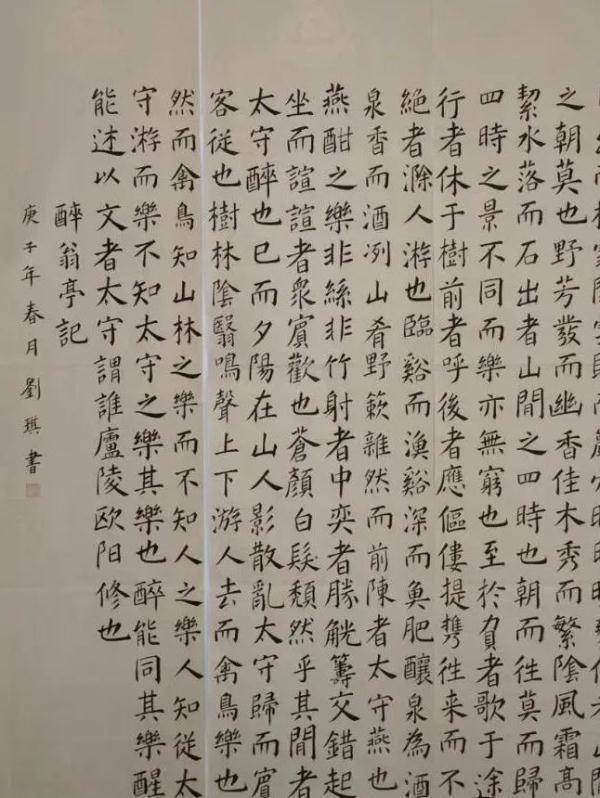 之朝莫也野芳發而幽香佳木秀而繁陰風霜高
絜水落而石出者山間之四時也朝而往莫而歸
四時之景不同而樂亦無窮也至於負者歌于途
行者休于樹前者呼後者應傴僂提攜往來而不
絕者滁人游也臨谿而漁谿深而魚肥釀泉為酒
泉香而酒冽山肴野蔌雜然而前陳者太守燕也
燕酣之樂非絲非竹射者中奕者勝觥籌交錯起
坐而諠諠者眾賓歡也蒼顏白髮頹然乎其間者
太守醉也已而夕陽在山人影散亂太守歸而賓
客從也樹林陰翳鳴聲上下游人去而禽鳥樂也
然而禽鳥知山林之樂而不知人之樂人知從太
守游而樂不知太守之樂其樂也醉能同其樂醒
能述以文者太守謂誰廬陵欧阳修也
醉翁亭記
庚子年春月劉琪書